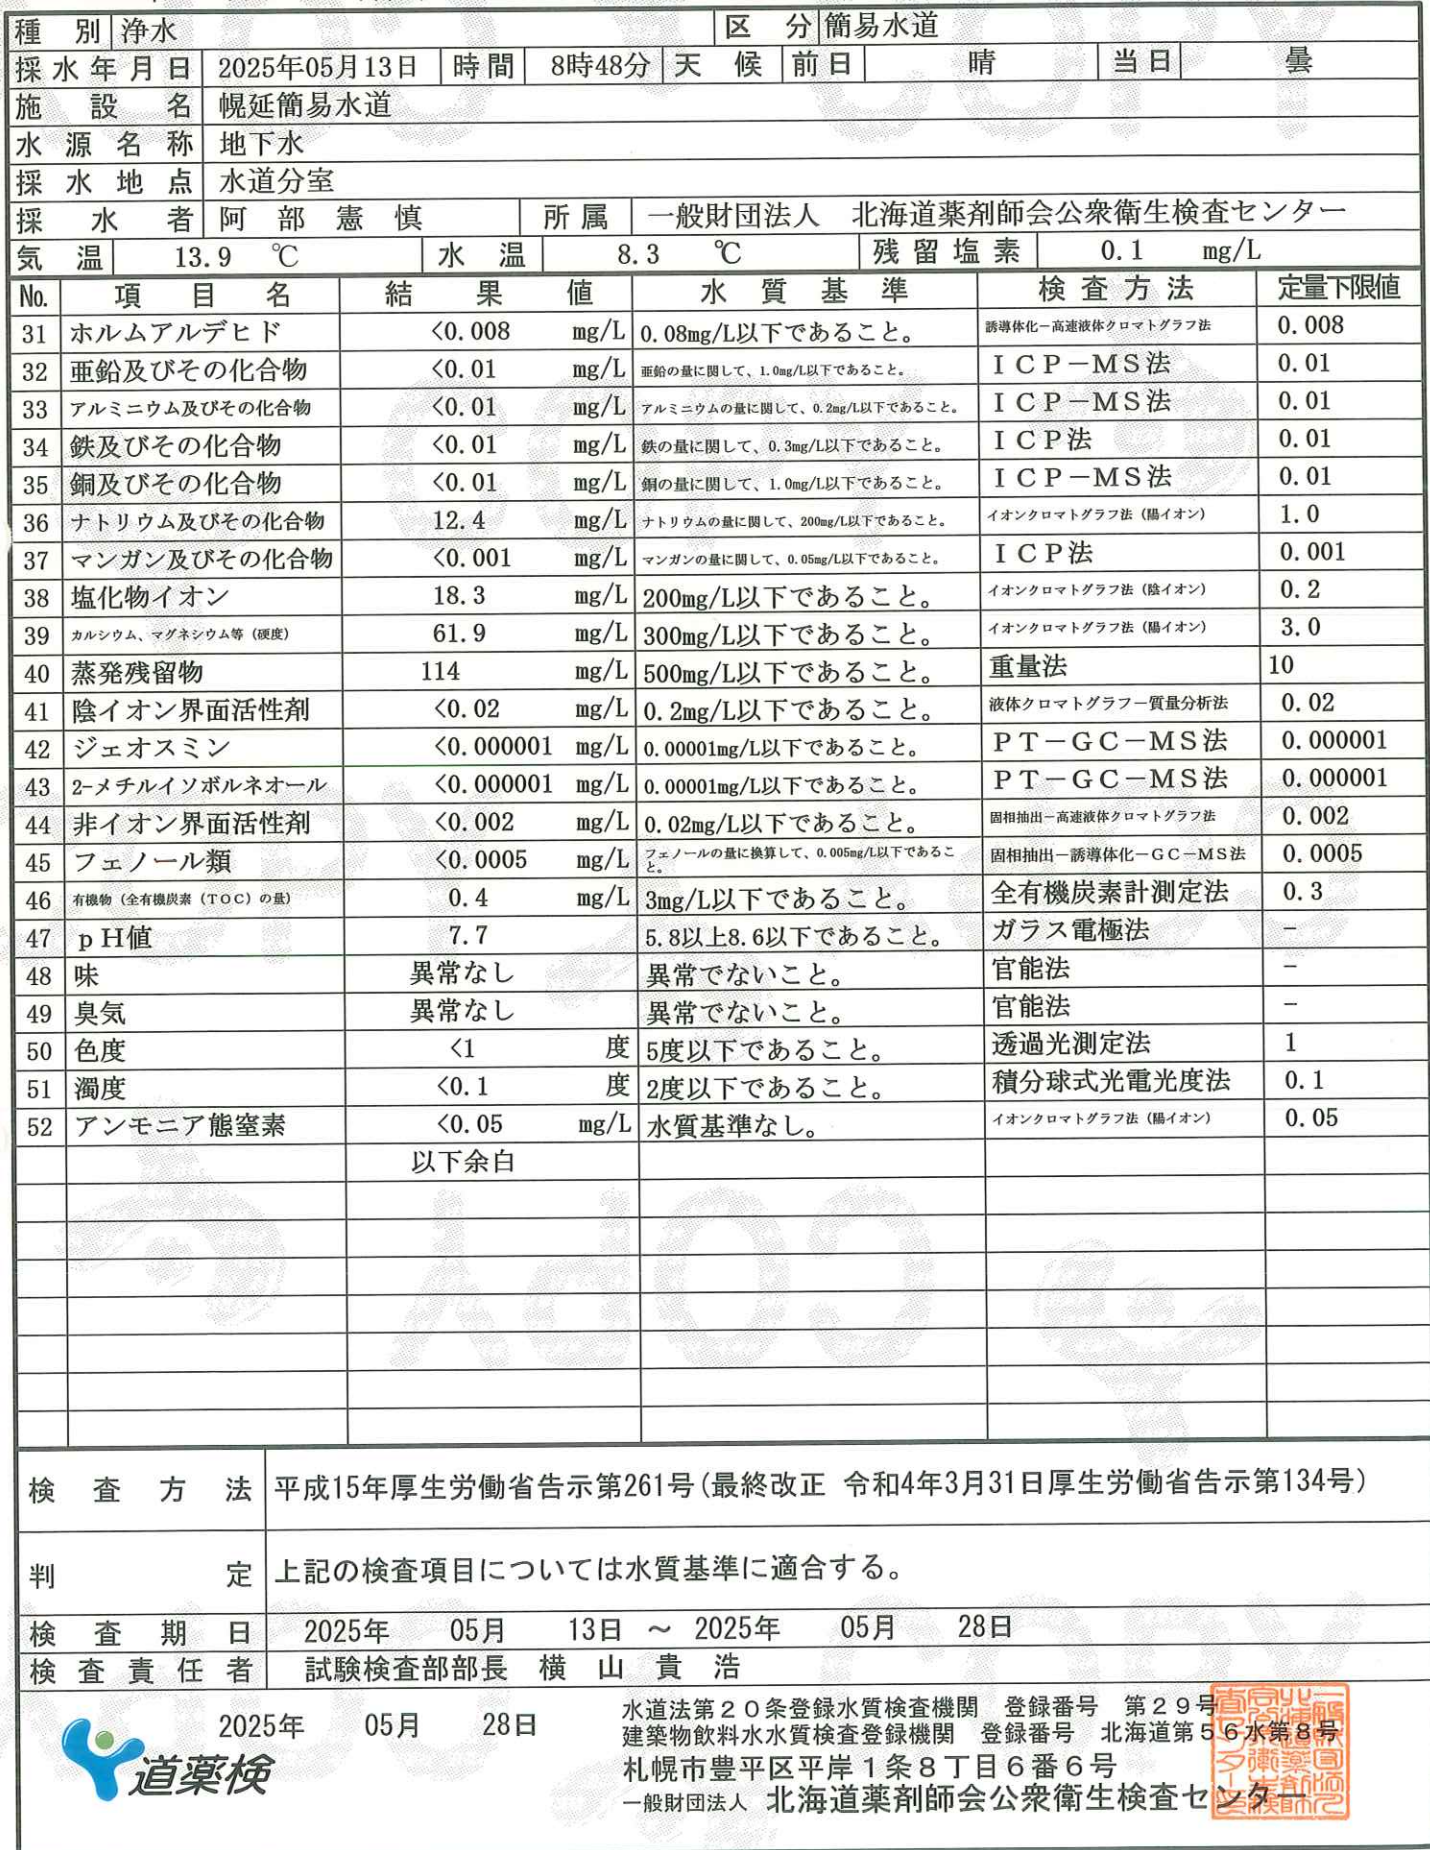 種別 浄水 区分 簡易水道
採水年月日 2025年05月13日 時間 8時48分 天候 前日 晴 当日 曇
施設名 幌延簡易水道
水源名称 地下水
採水地点 水道分室
採水者 阿部憲慎 所属 一般財団法人 北海道薬剤師会公衆衛生検査センター
気温 13.9 ℃ 水温 8.3 ℃ 残留塩素 0.1 mg/L
No. 項目名 結果値 水質基準 検査方法 定量下限値
31 ホルムアルデヒド <0.008 mg/L 0.08mg/L以下であること。 誘導体化-高速液体クロマトグラフ法 0.008
32 亜鉛及びその化合物 <0.01 mg/L 亜鉛の量に関して、1.0mg/L以下であること。 ICP-MS法 0.01
33 アルミニウム及びその化合物 <0.01 mg/L アルミニウムの量に関して、0.2mg/L以下であること。 ICP-MS法 0.01
34 鉄及びその化合物 <0.01 mg/L 鉄の量に関して、0.3mg/L以下であること。 ICP法 0.01
35 銅及びその化合物 <0.01 mg/L 銅の量に関して、1.0mg/L以下であること。 ICP-MS法 0.01
36 ナトリウム及びその化合物 12.4 mg/L ナトリウムの量に関して、200mg/L以下であること。 イオンクロマトグラフ法(陽イオン) 1.0
37 マンガン及びその化合物 <0.001 mg/L マンガンの量に関して、0.05mg/L以下であること。 ICP法 0.001
38 塩化物イオン 18.3 mg/L 200mg/L以下であること。 イオンクロマトグラフ法(陰イオン) 0.2
39 カルシウム、マグネシウム等(硬度) 61.9 mg/L 300mg/L以下であること。 イオンクロマトグラフ法(陽イオン) 3.0
40 蒸発残留物 114 mg/L 500mg/L以下であること。 重量法 10
41 陰イオン界面活性剤 <0.02 mg/L 0.2mg/L以下であること。 液体クロマトグラフ-質量分析法 0.02
42 ジェオスミン <0.000001 mg/L 0.00001mg/L以下であること。 PT-GC-MS法 0.000001
43 2-メチルイソボルネオール <0.000001 mg/L 0.00001mg/L以下であること。 PT-GC-MS法 0.000001
44 非イオン界面活性剤 <0.002 mg/L 0.02mg/L以下であること。 固相抽出-高速液体クロマトグラフ法 0.002
45 フェノール類 <0.0005 mg/L フェノールの量に換算して、0.005mg/L以下であること。 固相抽出-誘導体化-GC-MS法 0.0005
46 有機物(全有機炭素(TOC)の量) 0.4 mg/L 3mg/L以下であること。 全有機炭素計測定法 0.3
47 pH値 7.7 5.8以上8.6以下であること。 ガラス電極法 -
48 味 異常なし 異常でないこと。 官能法 -
49 臭気 異常なし 異常でないこと。 官能法 -
50 色度 <1 度 5度以下であること。 透過光測定法 1
51 濁度 <0.1 度 2度以下であること。 積分球式光電光度法 0.1
52 アンモニア態窒素 <0.05 mg/L 水質基準なし。 イオンクロマトグラフ法(陽イオン) 0.05
以下余白
検査方法 平成15年厚生労働省告示第261号(最終改正 令和4年3月31日厚生労働省告示第134号)
判定 上記の検査項目については水質基準に適合する。
検査期日 2025年 05月 13日 ~ 2025年 05月 28日
検査責任者 試験検査部部長 横山貴浩
2025年 05月 28日
水道法第20条登録水質検査機関 登録番号 第29号
建築物飲料水水質検査登録機関 登録番号 北海道第56水第8号
札幌市豊平区平岸1条8丁目6番6号
一般財団法人 北海道薬剤師会公衆衛生検査センター
道薬検